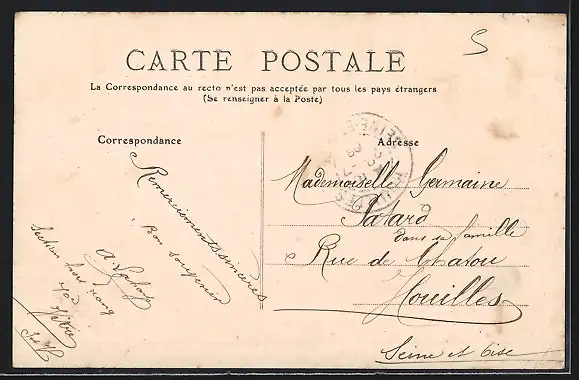 S
CARTE POSTALE
La Correspondance au recto n'est pas acceptée par tous les pays étrangers
(Se renseigner à la Poste)
Correspondance
Adresse
Remerciements sincères
Bon souvenir
A.
Section hors rang
Mademoiselle Germaine
Patard
dans sa famille
Rue de Chatou
Houilles
Seine et Oise